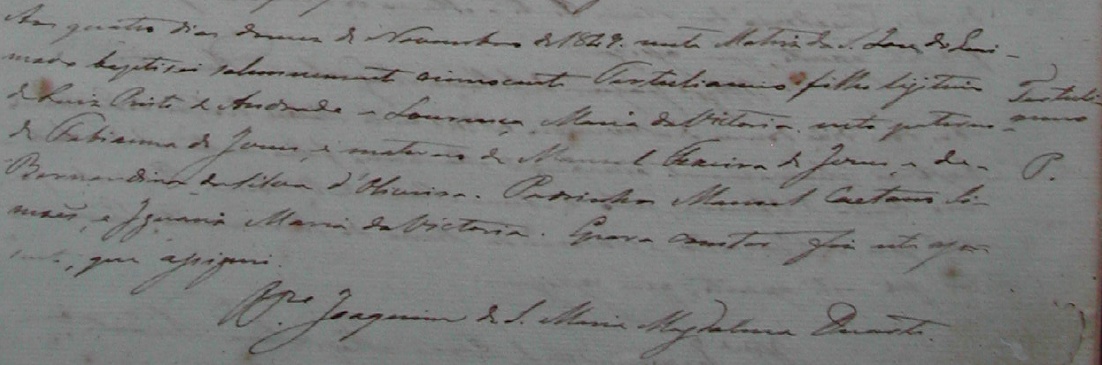 Aos quatro dias do mez de Novembro de 1849. nesta Matriz de S. Jose do
baptisei solemnemente o innocente Tertulianno filho legitimo
de Luiz Pinto de Andrade e Lourença Maria da Victoria. neto paterno
de Fabianna de Jesus, e materno de Manoel Teixeira de Jesus, e de
Bernardina da Silva d'Oliveira. Padrinhos Manoel Caetano Si-
mões, e Ignacia Maria da Victoria. E para constar fiz este
que assignei.
Joaquim de S. Maria Magdalena Duarte.
Tertuli-
anno
P.